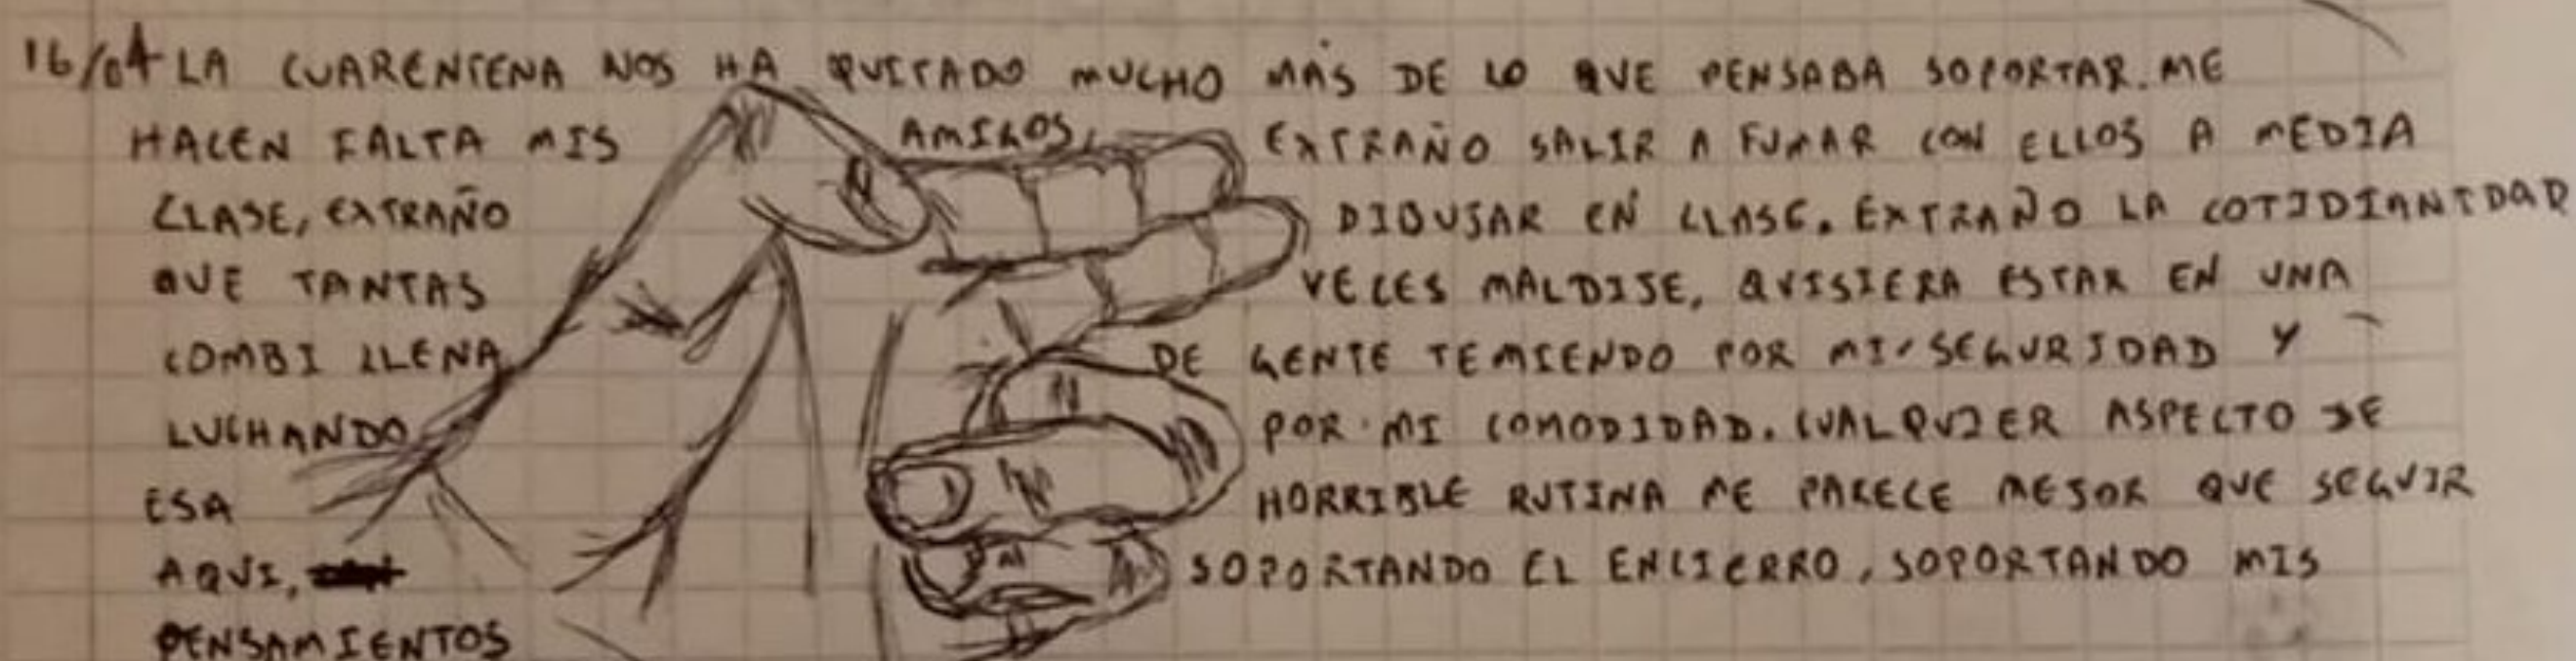 16/04 LA CUARENTENA NOS HA QUITADO MUCHO MÁS DE LO QUE PENSABA SOPORTAR. ME
HACEN FALTA MIS AMIGOS, EXTRAÑO SALIR A FUMAR CON ELLOS A MEDIA
CLASE, EXTRAÑO DIBUJAR EN CLASE. EXTRAÑO LA COTIDIANIDAD
QUE TANTAS VECES MALDIJE, QUISIERA ESTAR EN UNA
COMBI LLENA DE GENTE TEMIENDO POR MI SEGURIDAD Y
LUCHANDO POR MI COMODIDAD. CUALQUIER ASPECTO DE
ESA HORRIBLE RUTINA ME PARECE MEJOR QUE SEGUIR
AQUI, SOPORTANDO EL ENCIERRO, SOPORTANDO MIS
PENSAMIENTOS